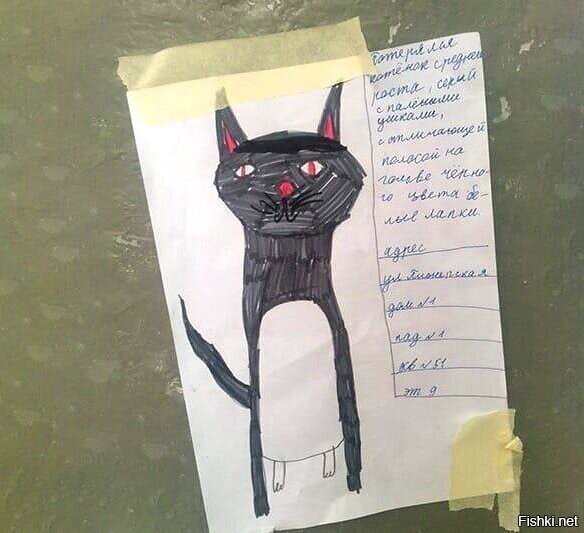 Потерялся
котёнок среднего
роста, серый
с палёными
ушками,
с отличающей
полосой на
голове чёрно-
го цвета бе-
лые лапки.
адрес
ул Пионерская
дом №1
пад №1
кв №51
эт 9
Fishki.net